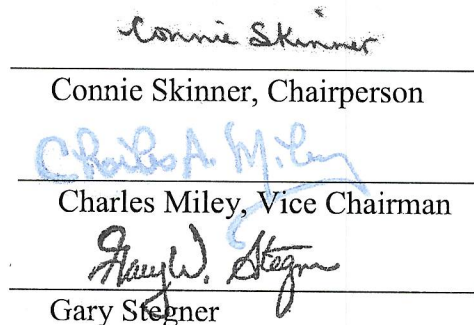 Connie Skinner
Connie Skinner, Chairperson
Charles A. Miley
Charles Miley, Vice Chairman
Gary W. Stegner
Gary Stegner